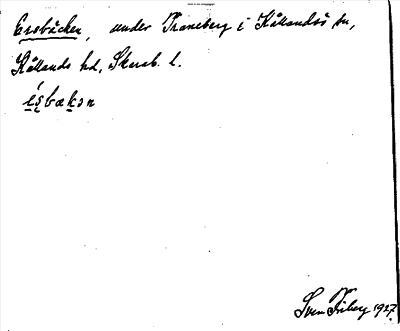 Ersbäcken, under Traneberg i Kållandsö sn,
Kållands hd, Skarab. l.
ésbækən
Sven Friberg 1927.